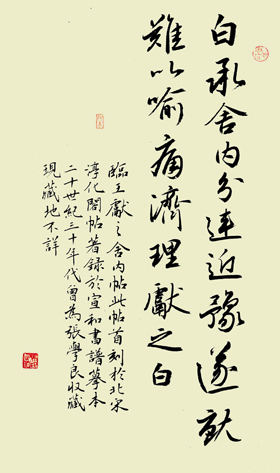 白承舍内分違近豫遂就
難以喻痛濟理獻之白
臨王獻之舍内帖此帖首刻於北宋
淳化閣帖著録於宣和書譜摹本
二十世紀三十年代曾為張學良收藏
現藏地不詳